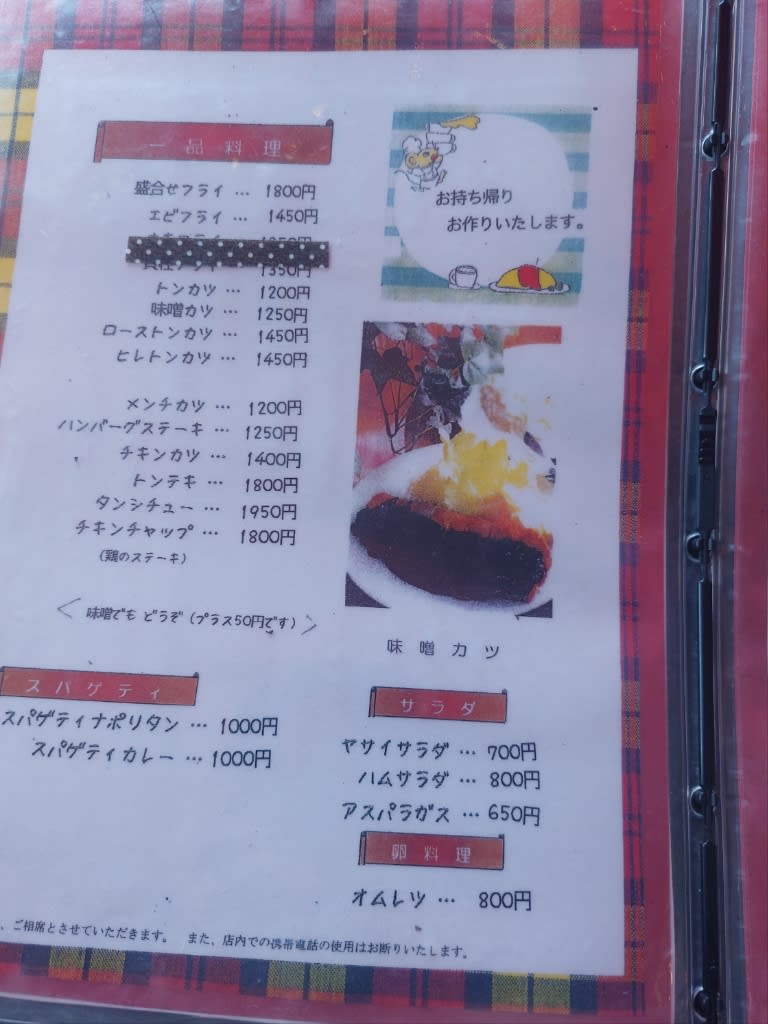 一品料理
盛合せフライ … 1800円
エビフライ … 1450円
1350円
トンカツ … 1200円
味噌カツ … 1250円
ローストンカツ … 1450円
ヒレトンカツ … 1450円
メンチカツ … 1200円
ハンバーグステーキ … 1250円
チキンカツ … 1400円
トンテキ … 1800円
タンシチュー … 1950円
チキンチャップ … 1800円
(鶏のステーキ)
<味噌でも どうぞ (プラス50円です)>
スパゲティ
スパゲティナポリタン … 1000円
スパゲティカレー … 1000円
お持ち帰り
お作りいたします。
味噌カツ
サラダ
ヤサイサラダ … 700円
ハムサラダ … 800円
アスパラガス … 650円
卵料理
オムレツ … 800円
、ご相席とさせていただきます。 また、店内での携帯電話の使用はお断りいたします。